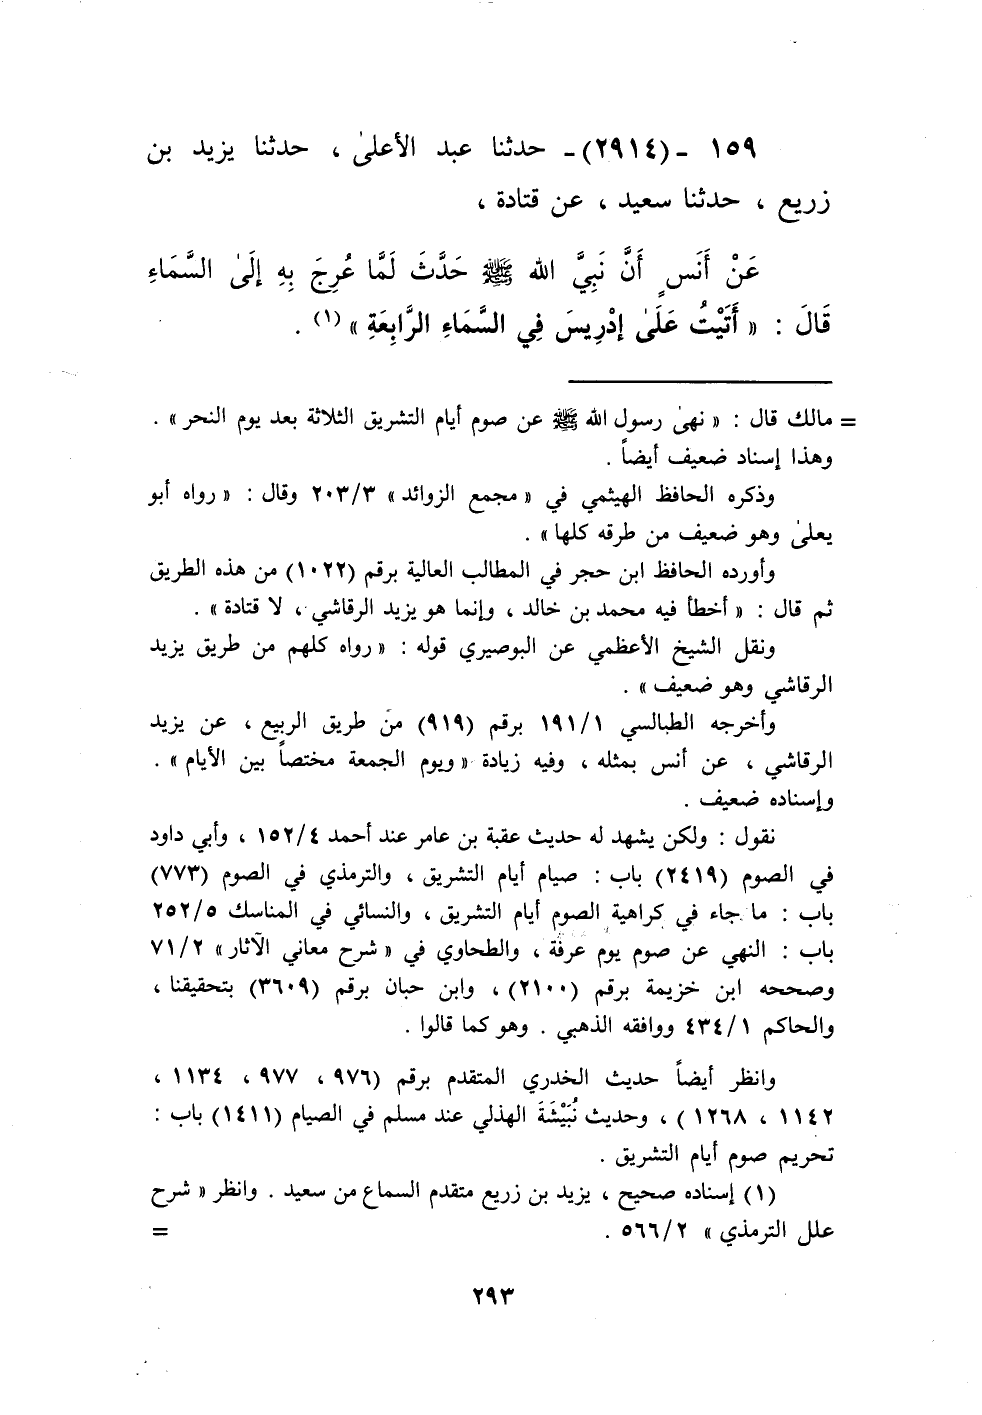 ١٥٩ ـ (٢٩١٤) ـ حدثنا عبد الأعلىٰ ، حدثنا يزيد بن
زريع ، حدثنا سعيد ، عن قتادة ،
عَنْ أَنَسٍ أَنَّ نَبِيَّ الله ﷺ حَدَّثَ لَمَّا عُرِجَ بِهِ إِلَىٰ السَّمَاءِ
قَالَ : « أَتَيْتُ عَلَىٰ إِدْرِيسَ فِي السَّمَاءِ الرَّابِعَةِ » (١) .
= مالك قال : « نهىٰ رسول الله ﷺ عن صوم أيام التشريق الثلاثة بعد يوم النحر » .
وهذا إسناد ضعيف أيضاً .
وذكره الحافظ الهيثمي في « مجمع الزوائد » ٢٠٣/٣ وقال : « رواه أبو
يعلىٰ وهو ضعيف من طرقه كلها » .
وأورده الحافظ ابن حجر في المطالب العالية برقم (١٠٢٢) من هذه الطريق
ثم قال : « أخطأ فيه محمد بن خالد ، وإنما هو يزيد الرقاشي ، لا قتادة » .
ونقل الشيخ الأعظمي عن البوصيري قوله : « رواه كلهم من طريق يزيد
الرقاشي وهو ضعيف » .
وأخرجه الطيالسي ١٩١/١ برقم (٩١٩) من طريق الربيع ، عن يزيد
الرقاشي ، عن أنس بمثله ، وفيه زيادة « ويوم الجمعة مختصاً بين الأيام » .
وإسناده ضعيف .
نقول : ولكن يشهد له حديث عقبة بن عامر عند أحمد ١٥٢/٤ ، وأبي داود
في الصوم (٢٤١٩) باب : صيام أيام التشريق ، والترمذي في الصوم (٧٧٣)
باب : ما جاء في كراهية الصوم أيام التشريق ، والنسائي في المناسك ٢٥٢/٥
باب : النهي عن صوم يوم عرفة ، والطحاوي في « شرح معاني الآثار » ٧١/٢
وصححه ابن خزيمة برقم (٢١٠٠) ، وابن حبان برقم (٣٦٠٩) بتحقيقنا ،
والحاكم ٤٣٤/١ ووافقه الذهبي . وهو كما قالوا .
وانظر أيضاً حديث الخدري المتقدم برقم (٩٧٦ ، ٩٧٧ ، ١١٣٤ ،
١١٤٢ ، ١٢٦٨ ) ، وحديث نُبَيْشَةَ الهذلي عند مسلم في الصيام (١٤١١) باب :
تحريم صوم أيام التشريق .
(١) إسناده صحيح ، يزيد بن زريع متقدم السماع من سعيد . وانظر « شرح
علل الترمذي » ٥٦٦/٢ . =
٢٩٣